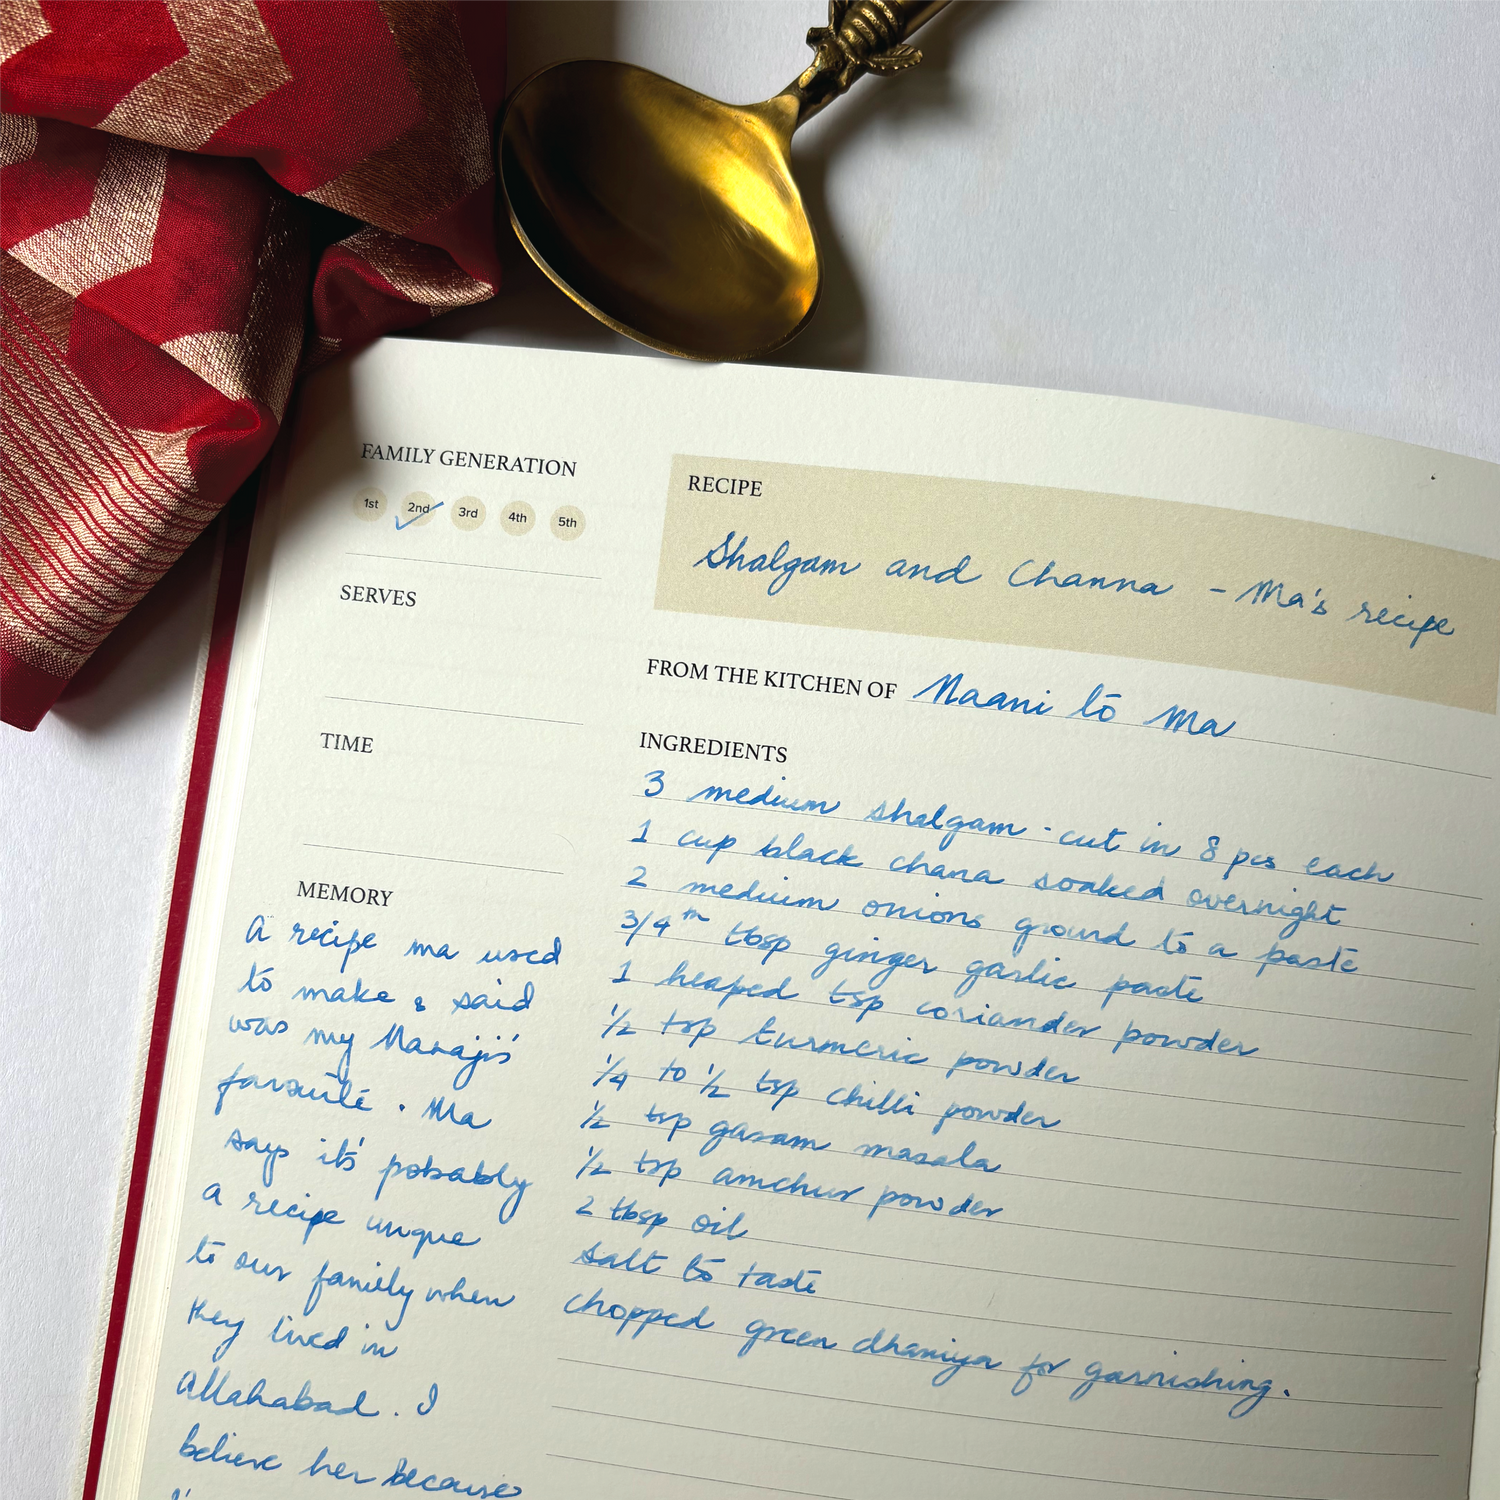 FAMILY GENERATION
1st 2nd 3rd 4th 5th
SERVES
TIME
MEMORY
A recipe ma used
to make & said
was my Nanaji's
favourite. Ma
says it's probably
a recipe unique
to our family when
they lived in
Allahabad. I
believe her because
RECIPE
Shalgam and Channa - Ma's recipe
FROM THE KITCHEN OF Naani to Ma
INGREDIENTS
3 medium shalgam - cut in 8 pcs each
1 cup black chana soaked overnight
2 medium onions ground to a paste
3/4th tbsp ginger garlic paste
1 heaped tsp coriander powder
1/2 tsp turmeric powder
1/4 to 1/2 tsp chilli powder
1/2 tsp garam masala
1/2 tsp amchur powder
2 tbsp oil
salt to taste
chopped green dhaniya for garnishing.